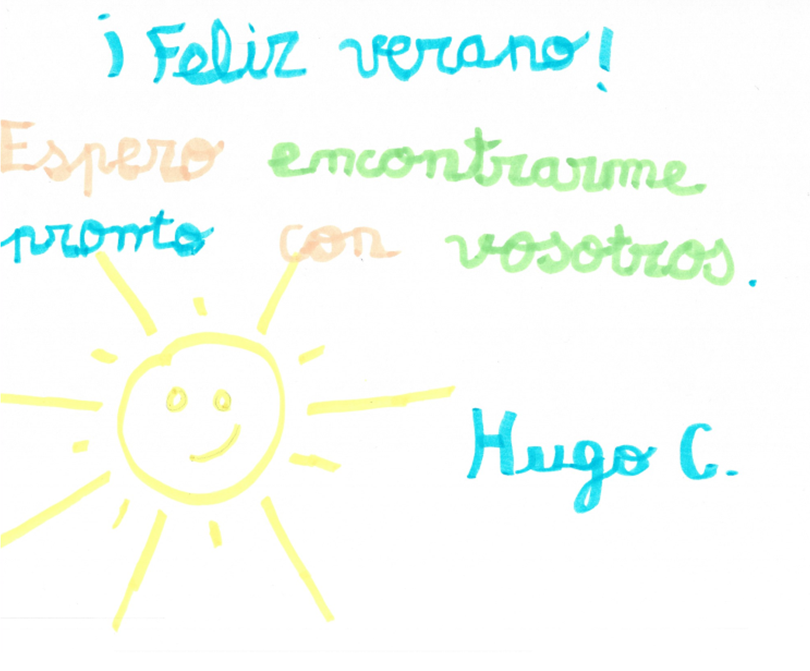 ¡Feliz verano!
Espero encontrarme
pronto con vosotros.
Hugo C.